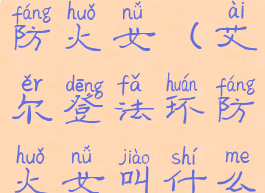 fáng huǒ nǚ ài
防火女（艾
ěr dēng fǎ huán fáng
尔登法环防
huǒ nǚ jiào shí me
火女叫什么